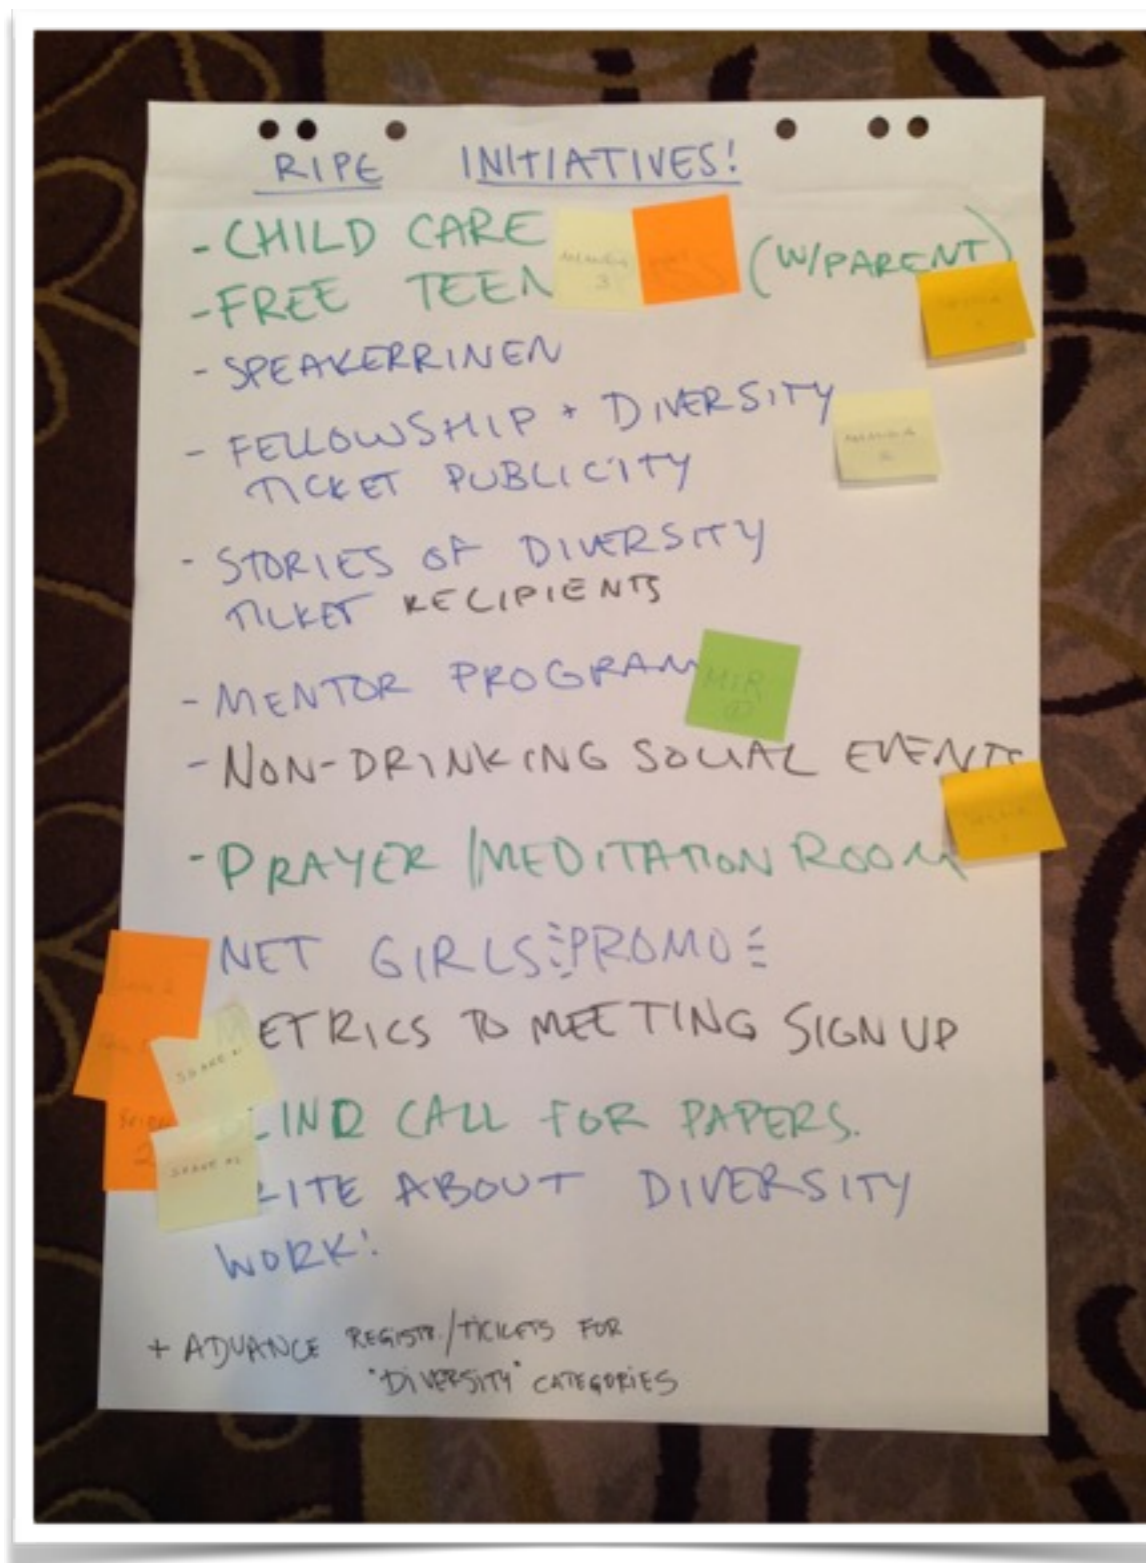 RIPE INITIATIVES!
- CHILD CARE
- FREE TEEN (W/PARENT)
- SPEAKERRINEN
- FELLOWSHIP + DIVERSITY
TICKET PUBLICITY
- STORIES OF DIVERSITY
TICKET RECIPIENTS
- MENTOR PROGRAM
MIR
- NON-DRINKING SOCIAL EVENTS
- PRAYER/MEDITATION ROOM
NET GIRLS PROMO
METRICS TO MEETING SIGN UP
LIND CALL FOR PAPERS.
ITE ABOUT DIVERSITY
WORK!
+ ADVANCE REGISTR./TICKETS FOR
"DIVERSITY" CATEGORIES